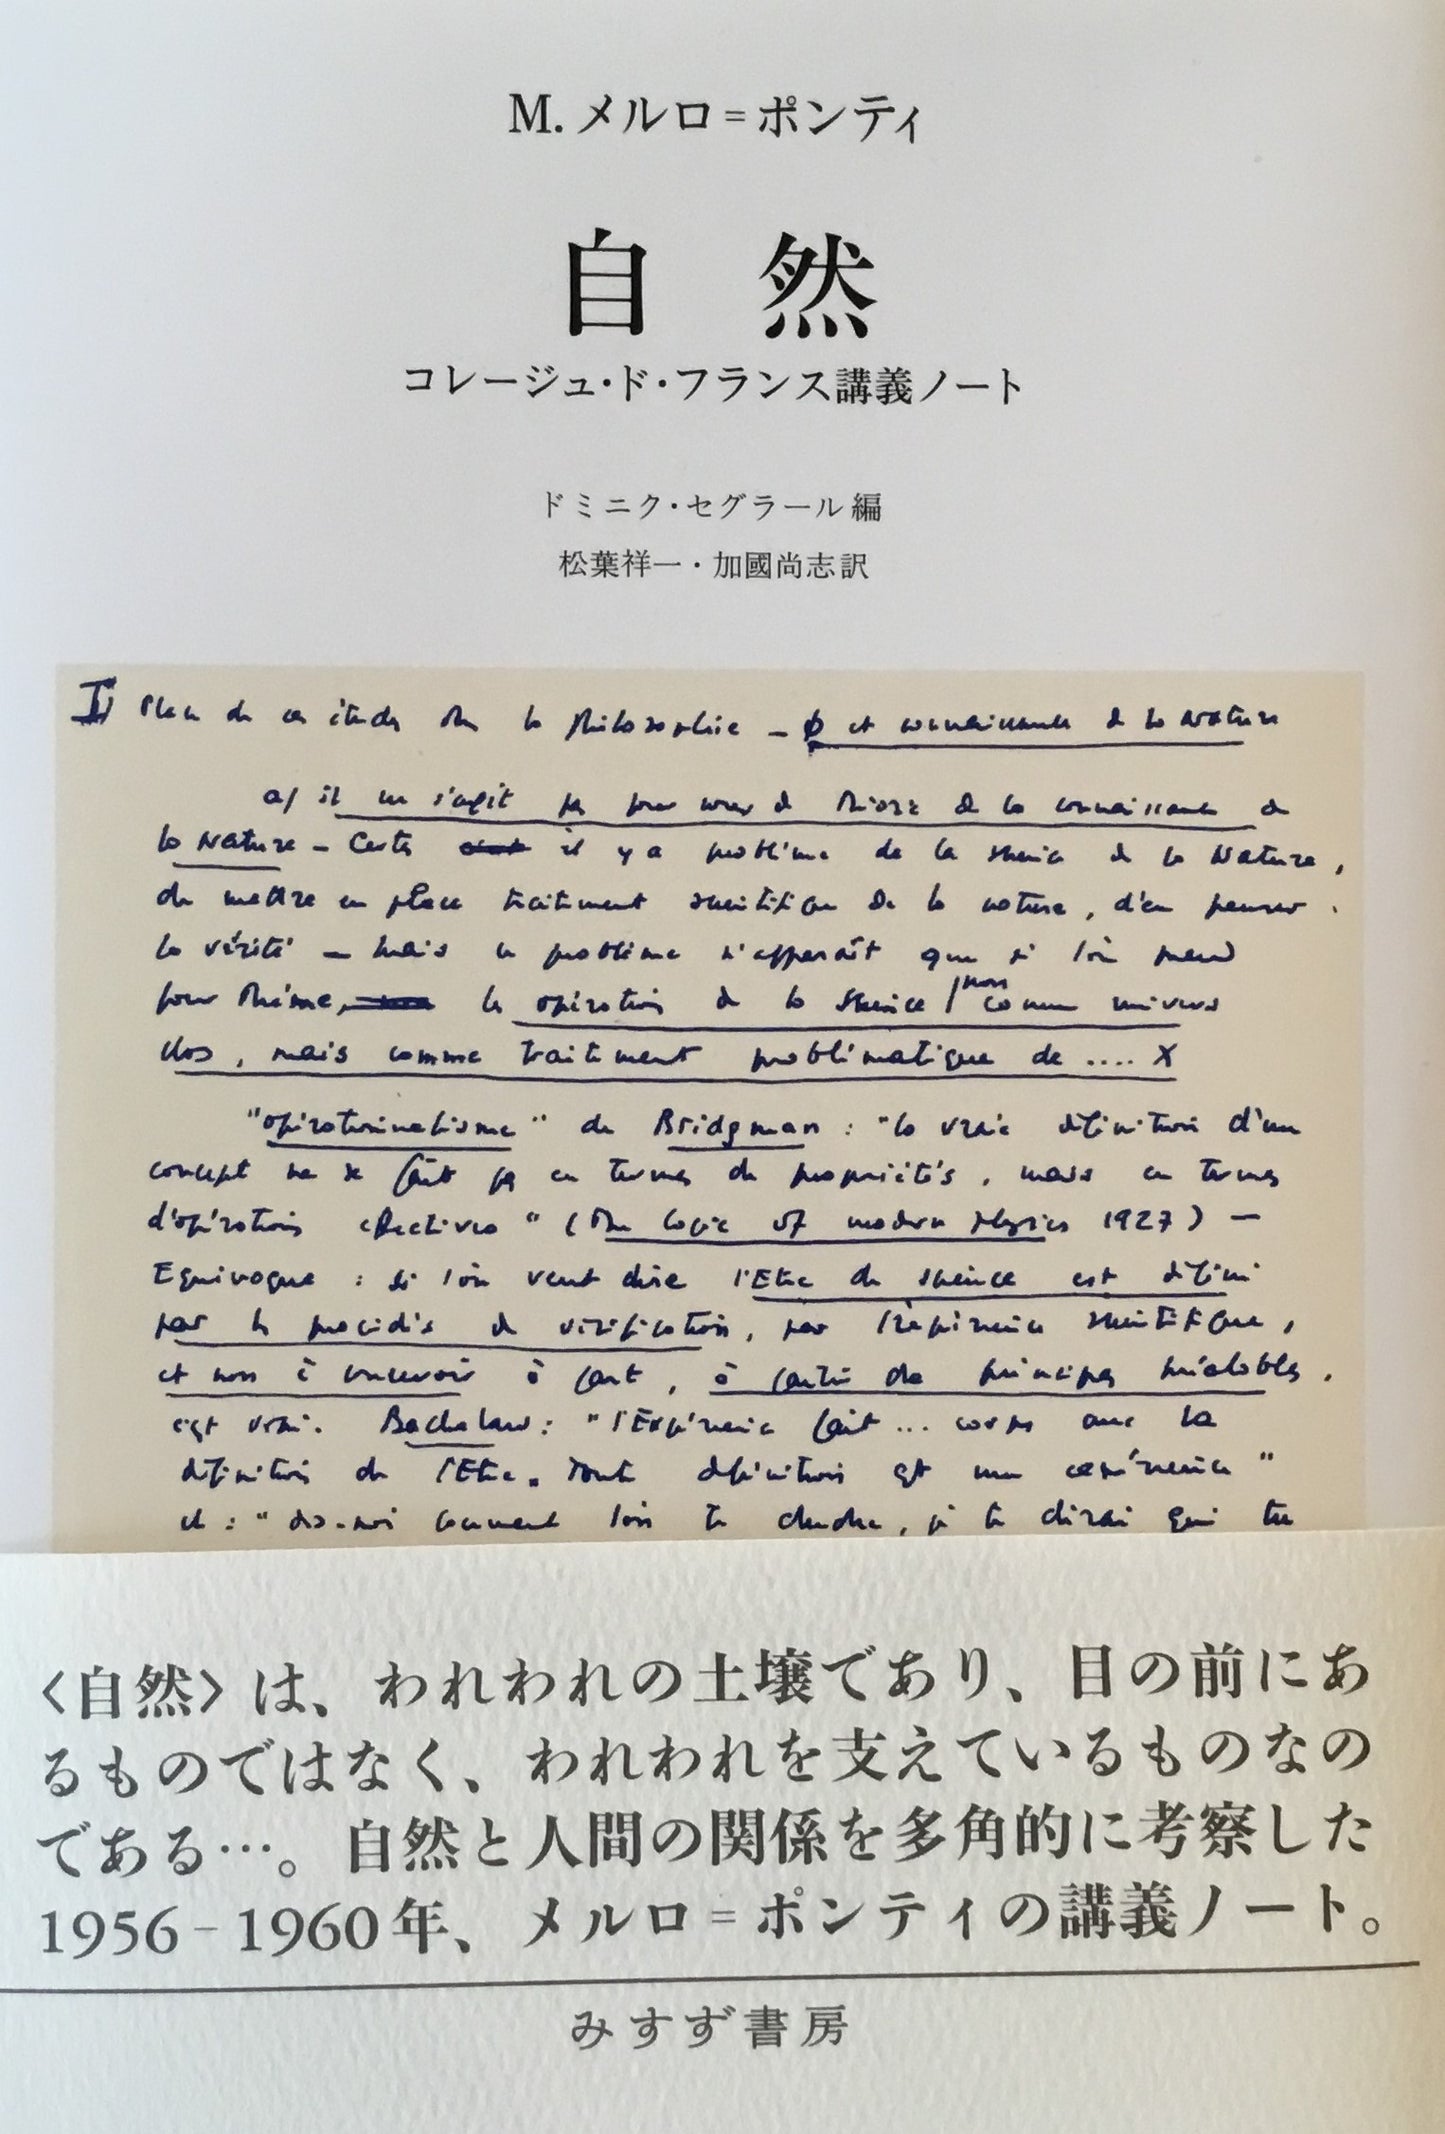 M. メルロ=ポンティ
自 然
コレージュ・ド・フランス講義ノート
ドミニク・セグラール編
松葉祥一・加國尚志訳
I) Place de ces études dans la philosophie – φ et connaissance de la nature
a) il ne s'agit pas pour nous de théorie de la connaissance de
la Nature – Certes il y a problème de la science de la Nature,
de mettre en place traitement scientifique de la nature, d'en penser
la vérité – mais ce problème n'apparaît que si l'on prend
pour thème, les opérations de la science / non comme univers
clos, mais comme traitement problématique de .... X
"opérationnalisme" de Bridgman : "la vraie définition d'un
concept ne se fait pas en termes de propriétés, mais en termes
d'opérations effectives" (The logic of modern physics 1927) –
Equivoque : si l'on veut dire l'Etre de science est défini
par les procédés de vérification, par l'expérience scientifique,
et non à concevoir à part, à partir de principes préalables,
c'est vrai. Bachelard : "l'Expérience fait ... corps avec la
définition de l'Etre. Toute définition est une expérience"
et : "dis-moi comment l'on te cherche, je te dirai qui tu
〈自然〉は、われわれの土壌であり、目の前にあ
るものではなく、われわれを支えているものなの
である…。自然と人間の関係を多角的に考察した
1956–1960年、メルロ=ポンティの講義ノート。
みすず書房